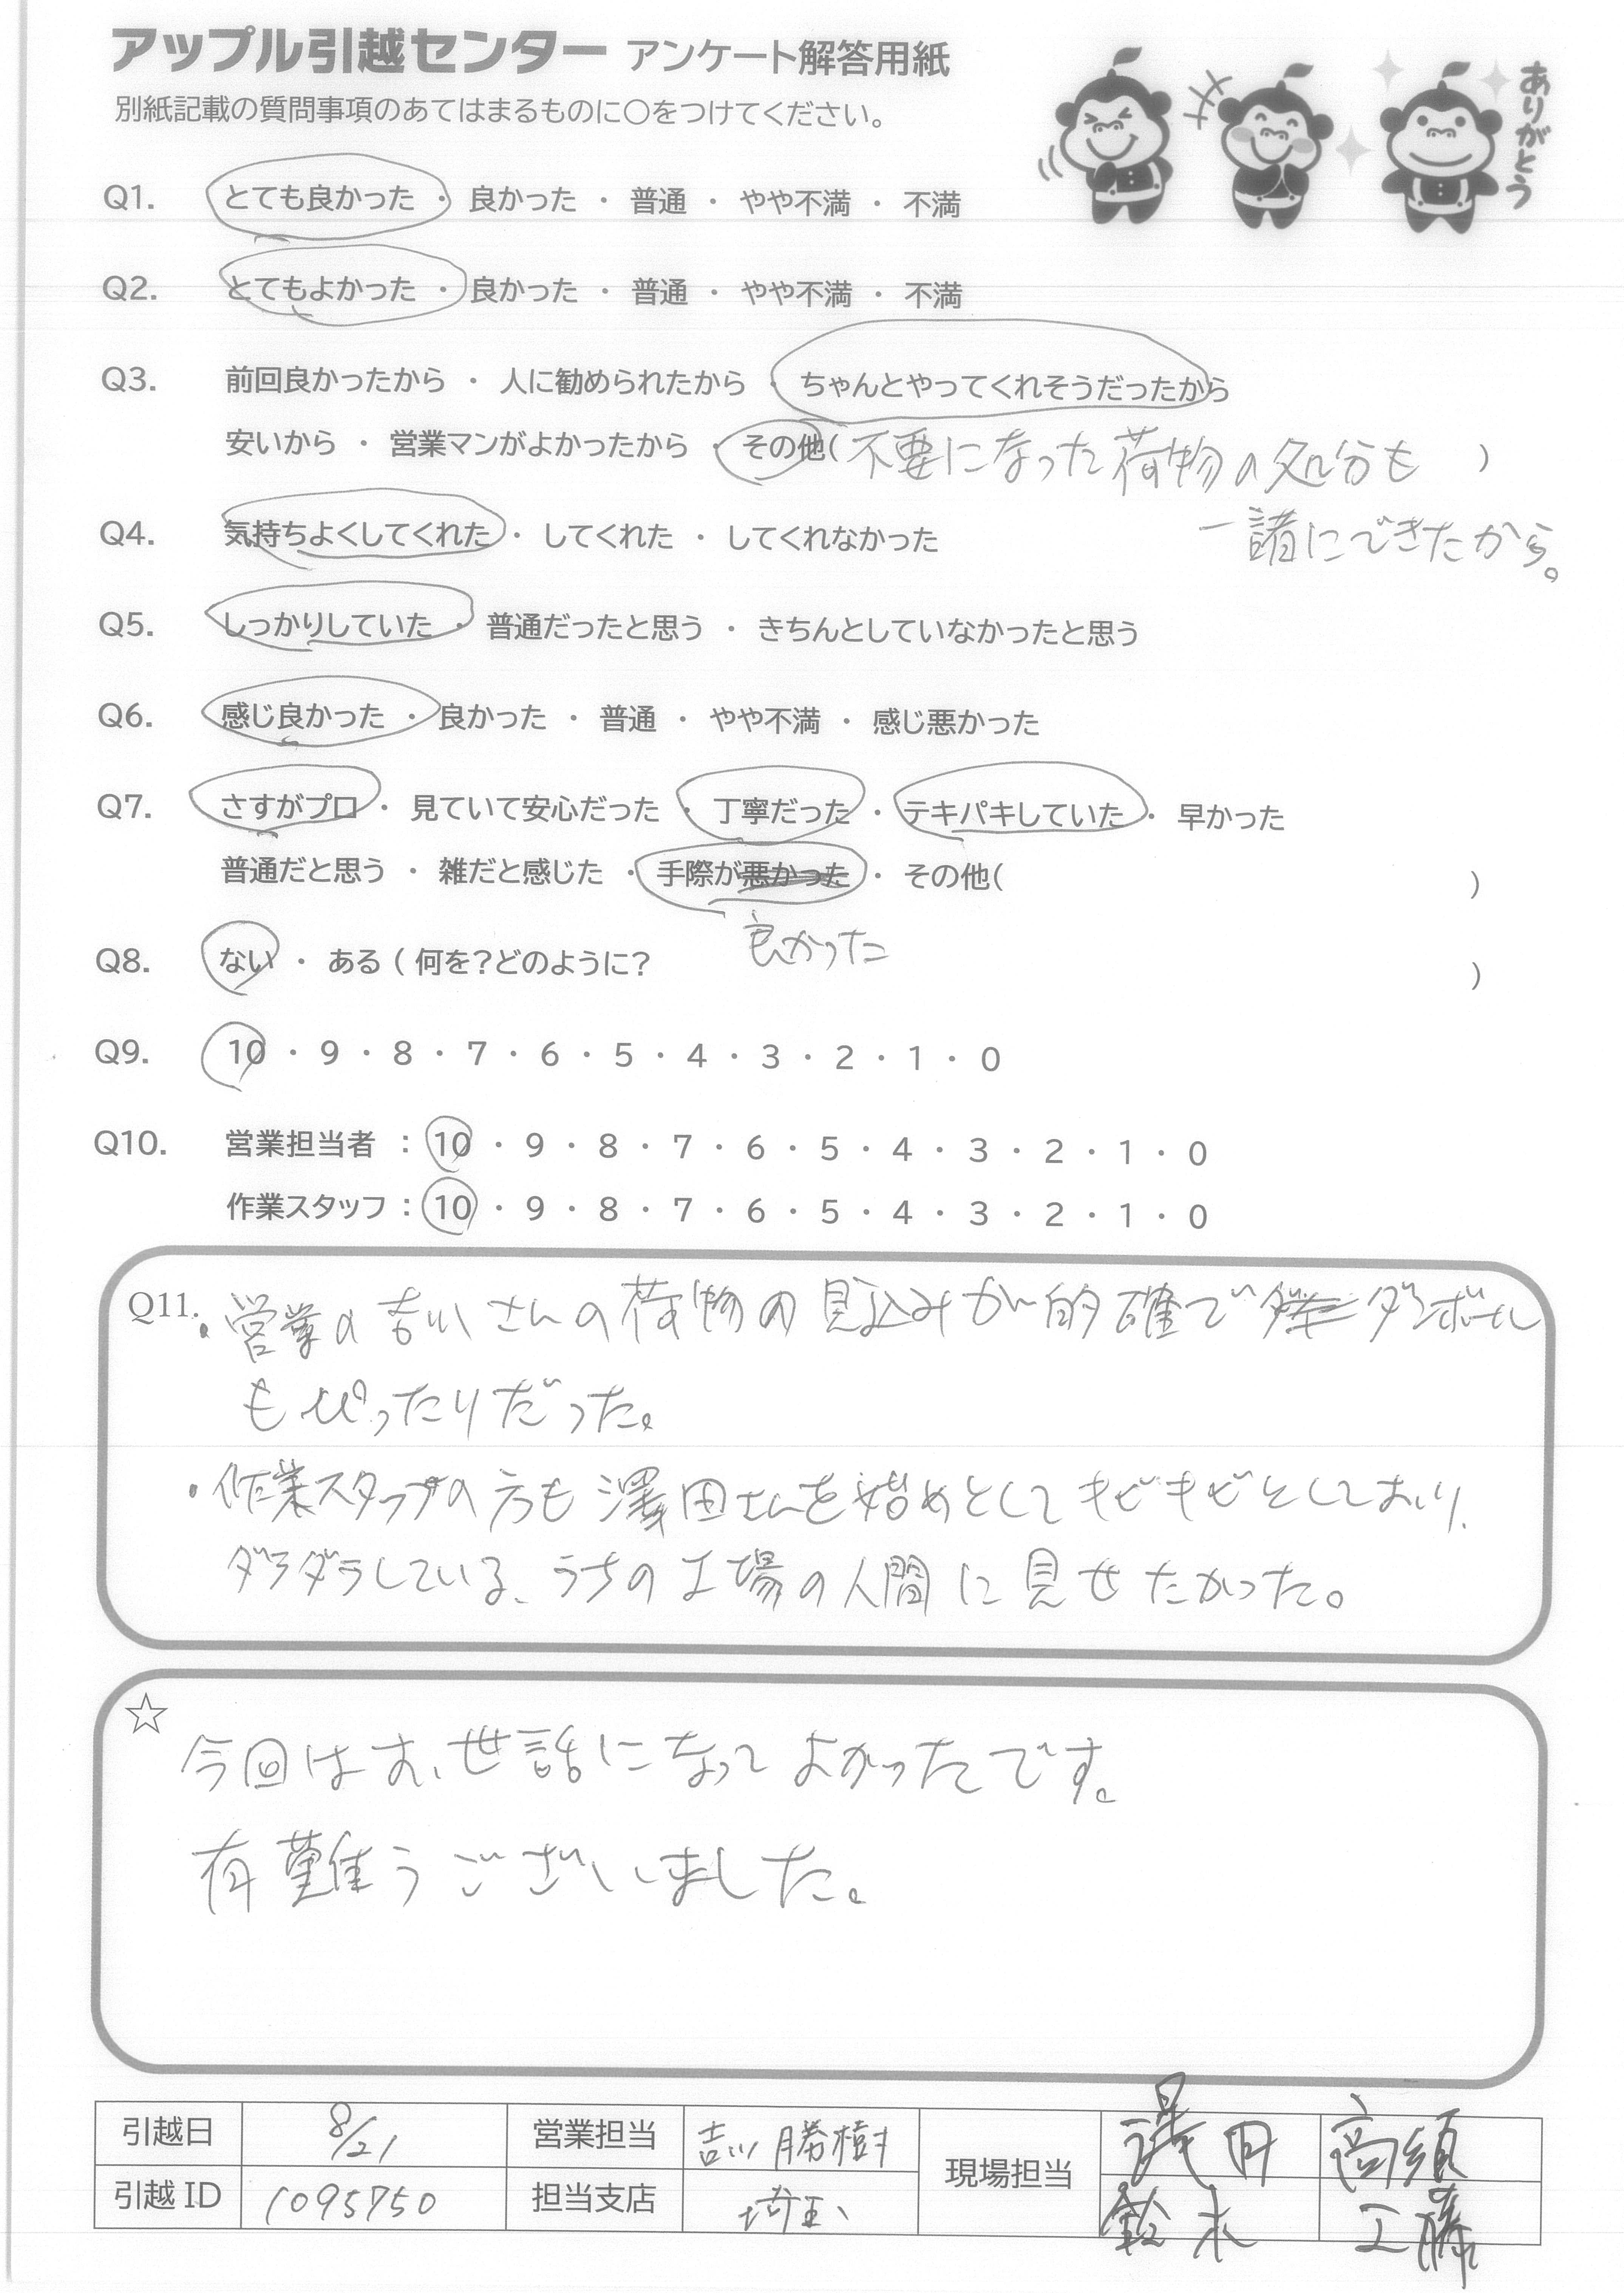 アップル引越センター アンケート解答用紙
別紙記載の質問事項のあてはまるものに〇をつけてください。
ありがとう
Q1. とても良かった ・ 良かった ・ 普通 ・ やや不満 ・ 不満
Q2. とてもよかった ・ 良かった ・ 普通 ・ やや不満 ・ 不満
Q3. 前回良かったから ・ 人に勧められたから ・ ちゃんとやってくれそうだったから
安いから ・ 営業マンがよかったから ・ その他( 不要になった荷物の処分も )
一諸にできたから。
Q4. 気持ちよくしてくれた ・ してくれた ・ してくれなかった
Q5. しっかりしていた ・ 普通だったと思う ・ きちんとしていなかったと思う
Q6. 感じ良かった ・ 良かった ・ 普通 ・ やや不満 ・ 感じ悪かった
Q7. さすがプロ ・ 見ていて安心だった ・ 丁寧だった ・ テキパキしていた ・ 早かった
普通だと思う ・ 雑だと感じた ・ 手際が悪かった ・ その他( )
良かった
Q8. ない ・ ある ( 何を?どのように? )
Q9. 10 ・ 9 ・ 8 ・ 7 ・ 6 ・ 5 ・ 4 ・ 3 ・ 2 ・ 1 ・ 0
Q10. 営業担当者 : 10 ・ 9 ・ 8 ・ 7 ・ 6 ・ 5 ・ 4 ・ 3 ・ 2 ・ 1 ・ 0
作業スタッフ : 10 ・ 9 ・ 8 ・ 7 ・ 6 ・ 5 ・ 4 ・ 3 ・ 2 ・ 1 ・ 0
Q11. ・営業の吉川さんの荷物の見込みが的確で ダンボール
もぴったりだった。
・作業スタッフの方も澤田さんを始めとしてキビキビとしており、
ダラダラしている、うちの工場の人間に見せたかった。
☆
今回はお世話になってよかったです。
有難うございました。
引越日 8/21 営業担当 吉川勝樹 現場担当 澤田 高須
引越ID 1095750 担当支店 埼玉 鈴木 工藤